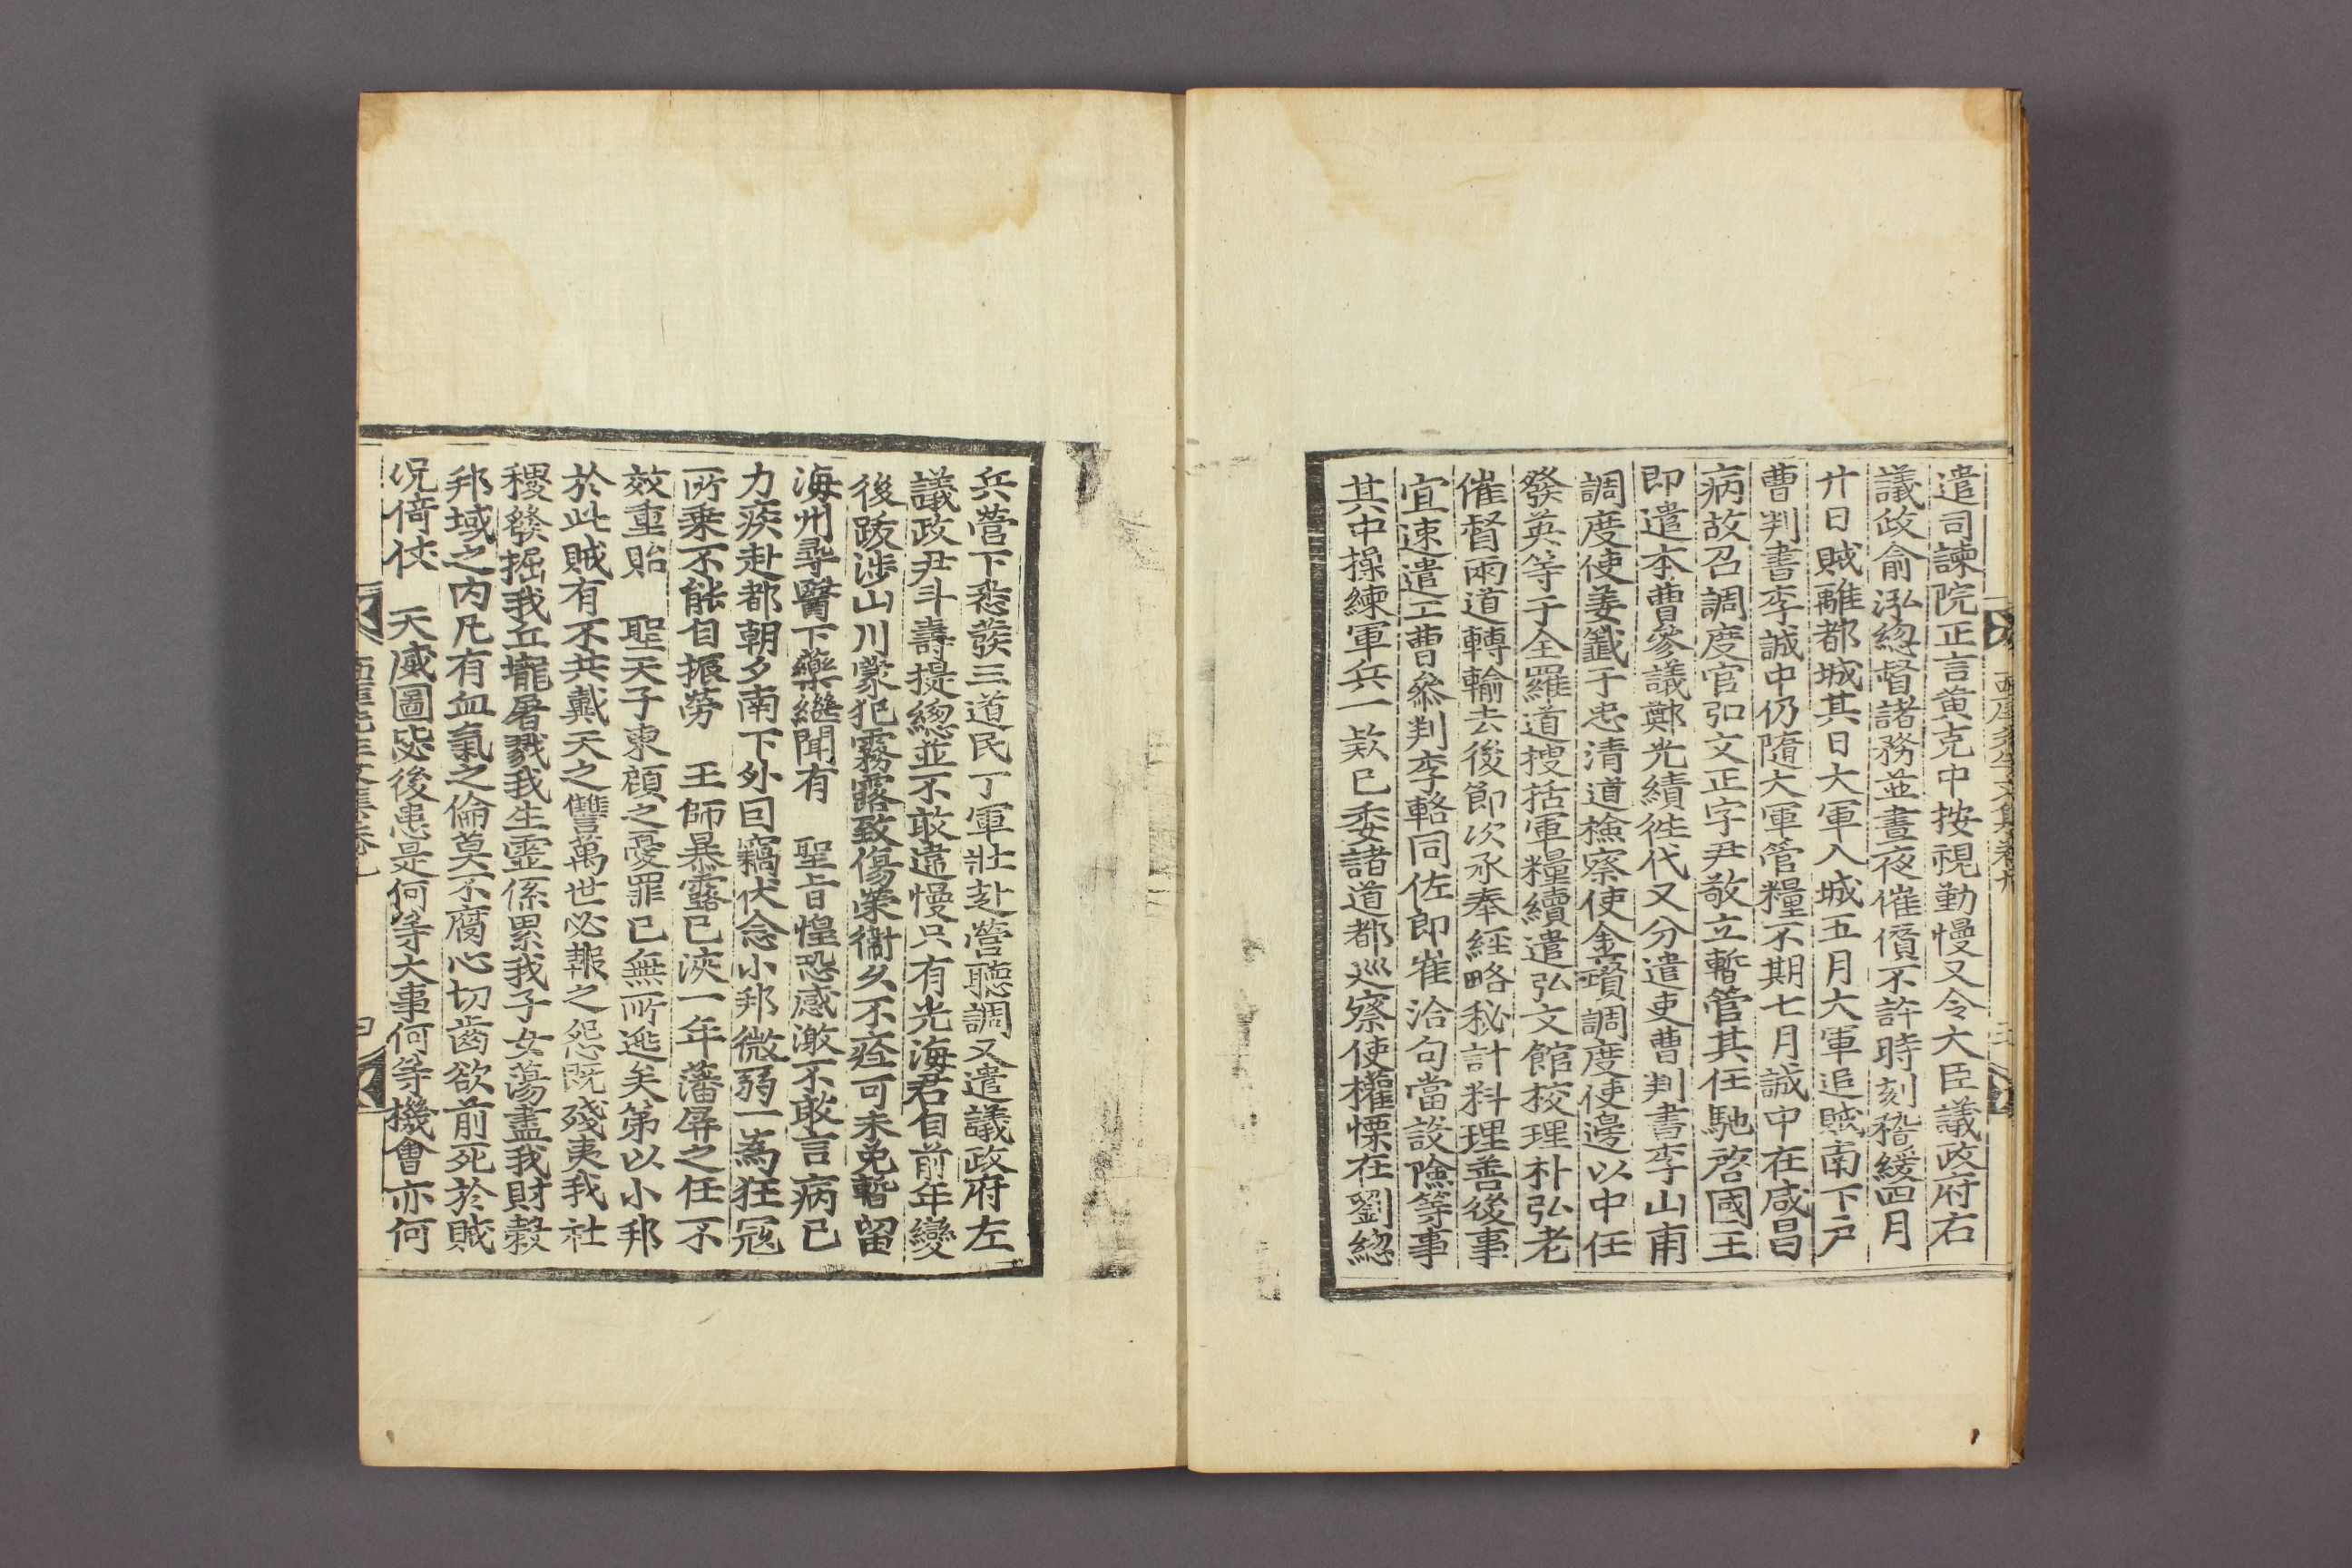 西厓先生文集卷九
三
遣司諫院正言黃克中按視勤慢又令大臣議政府右
議政俞泓緫督諸務並晝夜催儹不許時刻稽緩四月
廿日賊離都城其日大軍入城五月大軍追賊南下戶
曹判書李誠中仍隨大軍管糧不期七月誠中在咸昌
病故召調度官弘文正字尹敬立暫管其任馳啓國王
即遣本曹參議鄭光績徃代又分遣吏曹判書李山甫
調度使姜籤于忠清道檢察使金瓚調度使邊以中任
發英等于全羅道搜括軍糧續遣弘文館校理朴弘老
催督兩道轉輸去後節次承奉經略秘計料理善後事
宜速遣工曹叅判李輅同佐郎崔洽句當設險等事
其中操練軍兵一欵已委諸道都巡察使權慄在劉緫
兵營下悉發三道民丁軍壯赴營聽調又遣議政府左
議政尹斗壽提緫並不敢違慢只有光海君自前年變
後跋涉山川蒙犯霧露致傷榮衞久不痊可未免暫留
海州尋醫下藥繼聞有　聖旨惶恐感激不敢言病已
力疾赴都朝夕南下外回竊伏念小邦微弱一爲狂冦
所乗不能自振勞　王師暴露已浹一年藩屏之任不
效重貽　聖天子東顧之憂罪已無所逃矣第以小邦
於此賊有不共戴天之讐萬世必報之怨旣殘夷我社
稷發掘我丘壠屠戮我生靈係累我子女蕩盡我財穀
邦域之內凡有血氣之倫莫不腐心切齒欲前死於賊
况倚仗　天威圖毖後患是何等大事何等機會亦何